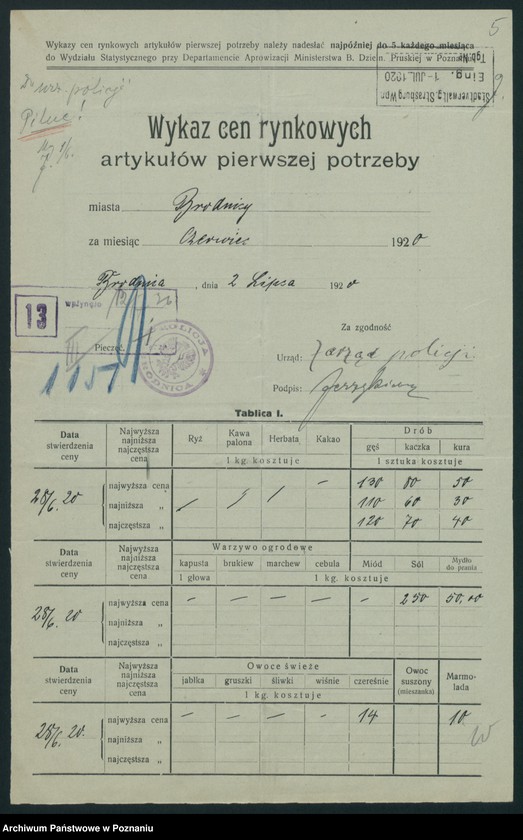 5
Wykazy cen rynkowych artykułów pierwszej potrzeby należy nadesłać najpóźniej do 5 każdego miesiąca
do Wydziału Statystycznego przy Departamencie Aprowizacji Ministerstwa B. Dzieln. Pruskiej w Poznaniu
Stadtverwaltg. Strasburg Wpr.
Eing. 1-JUL.1920
Tgb.Nr.
Pilne!
Wykaz cen rynkowych
artykułów pierwszej potrzeby
miasta Brodnicy
za miesiąc Czerwiec 1920
Brodnica, dnia 2 Lipca 1920
13
wpłynęło
Pieczęć.
1157
POLICJA
Za zgodność
Urząd: Zarząd policji
Podpis:
Tablica I.
Data stwierdzenia ceny | Najwyższa najniższa najczęstsza cena | Ryż | Kawa palona | Herbata | Kakao | Drób
gęś | kaczka | kura
1 kg. kosztuje | 1 sztuka kosztuje
28/6. 20 | najwyższa cena | — | 130 | 80 | 50
najniższa „ | 110 | 60 | 30
najczęstsza „ | 120 | 70 | 40
Data stwierdzenia ceny | Najwyższa najniższa najczęstsza cena | Warzywo ogrodowe
kapusta | brukiew | marchew | cebula | Miód | Sól | Mydło do prania
1 głowa | 1 kg. kosztuje
28/6. 20 | najwyższa cena | — | — | — | — | — | 250 | 50.00
najniższa „
najczęstsza „
Data stwierdzenia ceny | Najwyższa najniższa najczęstsza cena | Owoce świeże | Owoc suszony (mieszanka) | Marmolada
jabłka | gruszki | śliwki | wiśnie | czereśnie
1 kg. kosztuje
28/6. 20. | najwyższa cena | — | — | — | — | 14 | 10
najniższa „
najczęstsza „
Archiwum Państwowe w Poznaniu
szukajwarchiwach.gov.pl